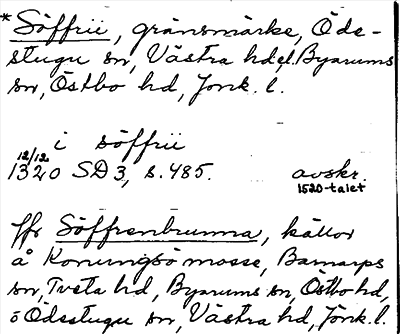 * Söffrii, gränsmärke, Öde-
stugu sn, Västra hd el. Byarums
sn, Östbo hd, Jönk. l.
i söffrii
12/12
1320 SD 3, s. 485. avskr.
1520-talet
Jfr Söffrenbrunna, källor
å Konungsö mosse, Barnarps
sn, Tveta hd, Byarums sn, Östbo hd,
o Ödestugu sn, Västra hd, Jönk. l.